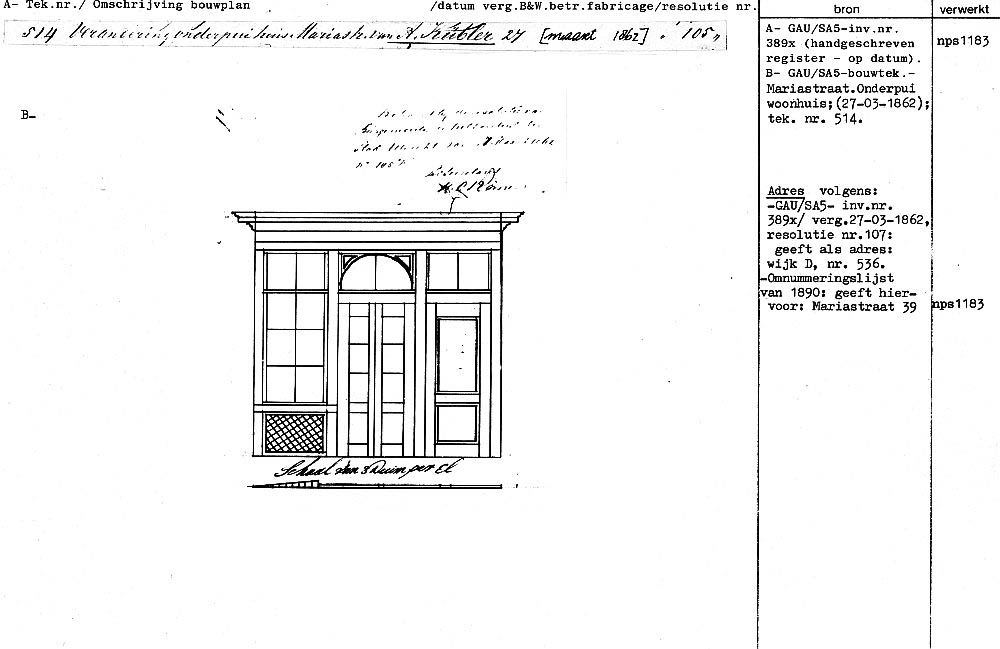 A- Tek.nr./ Omschrijving bouwplan /datum verg.B&W.betr.fabricage/resolutie nr.
514 Verandering onderpui huis Mariastr. van A. Kübler 27 [maart 1862] 105
B-
No 105
H C
Schaal van 3 Duim per El
bron
A- GAU/SA5-inv.nr.
389x (handgeschreven
register - op datum).
B- GAU/SA5-bouwtek.-
Mariastraat.Onderpui
woonhuis;(27-03-1862);
tek. nr. 514.
Adres volgens:
-GAU/SA5- inv.nr.
389x/ verg.27-03-1862,
resolutie nr.107:
geeft als adres:
wijk D, nr. 536.
-Omnummeringslijst
van 1890: geeft hier-
voor: Mariastraat 39
verwerkt
nps1183
nps1183